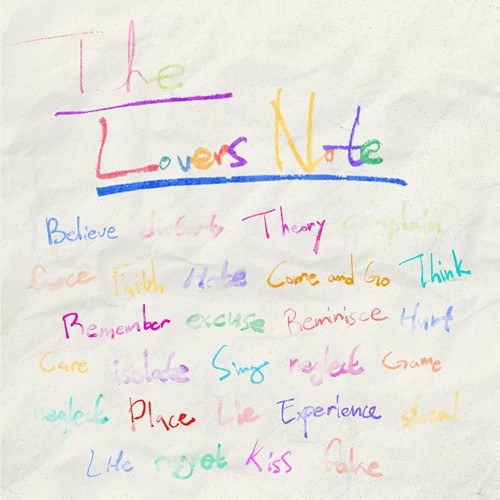 The
Lovers Note
Believe disturb Theory complain
Force Faith Hate Come and Go Think
Remember excuse Reminisce Hurt
Care isolate Sing neglect Game
neglect Place Lie Experience
Life regret Kiss fake